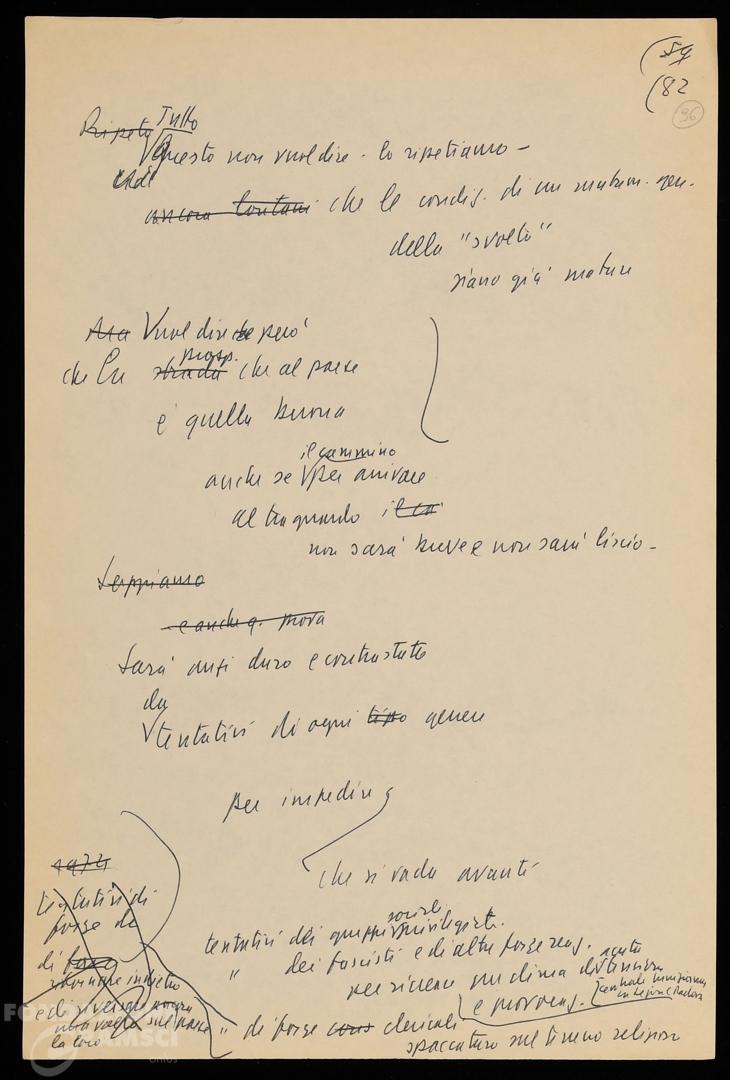 (59
(82
96
Ripeto Tutto
Questo non vuol dire - lo ripetiamo -
ancora lontani che le condiz. di un mutam. gen.
della "svolta"
siano già mature
Ma Vuol dire però
prosp.
che la strada che al paese
è quella buona
il cammino
anche se per arrivare
al traguardo il ca
non sarà breve e non sarà liscio -
Sappiamo
e anche q. prova
Sarà anzi duro e contrastato
da
tentativi di ogni tipo genere
per impedire
che si vada avanti
1974
tentativi di
forze di
sociali
tentativi dei gruppi privilegiati
" dei fascisti e di altre forze reaz.
acuta
per ricreare un clima di tensione
e provocaz.
di forze
ritornare indietro
e di
una volta sul paese
la loro
" di forze cons clericali
spaccatura sul terreno religioso